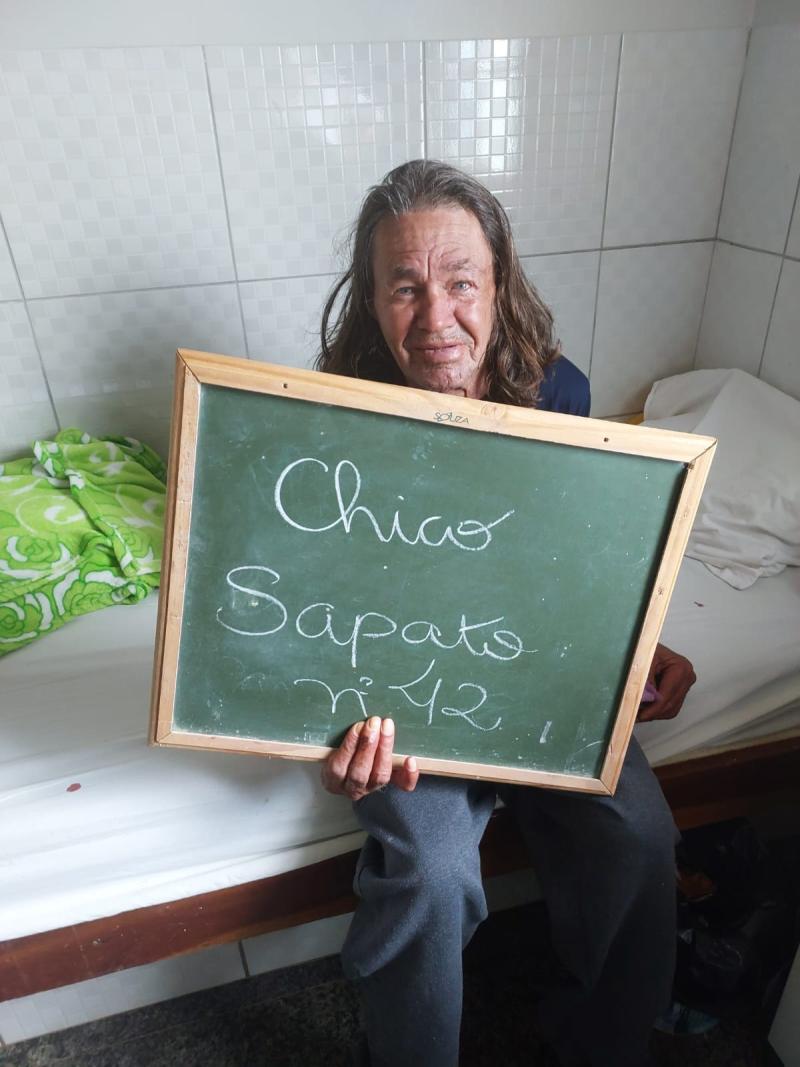 SOUZA
Chico
Sapato
nº 42